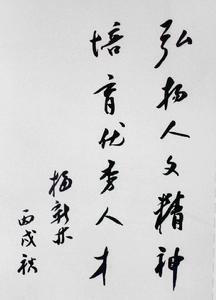 弘扬人文精神
培育优秀人才
杨新林
丙戌秋